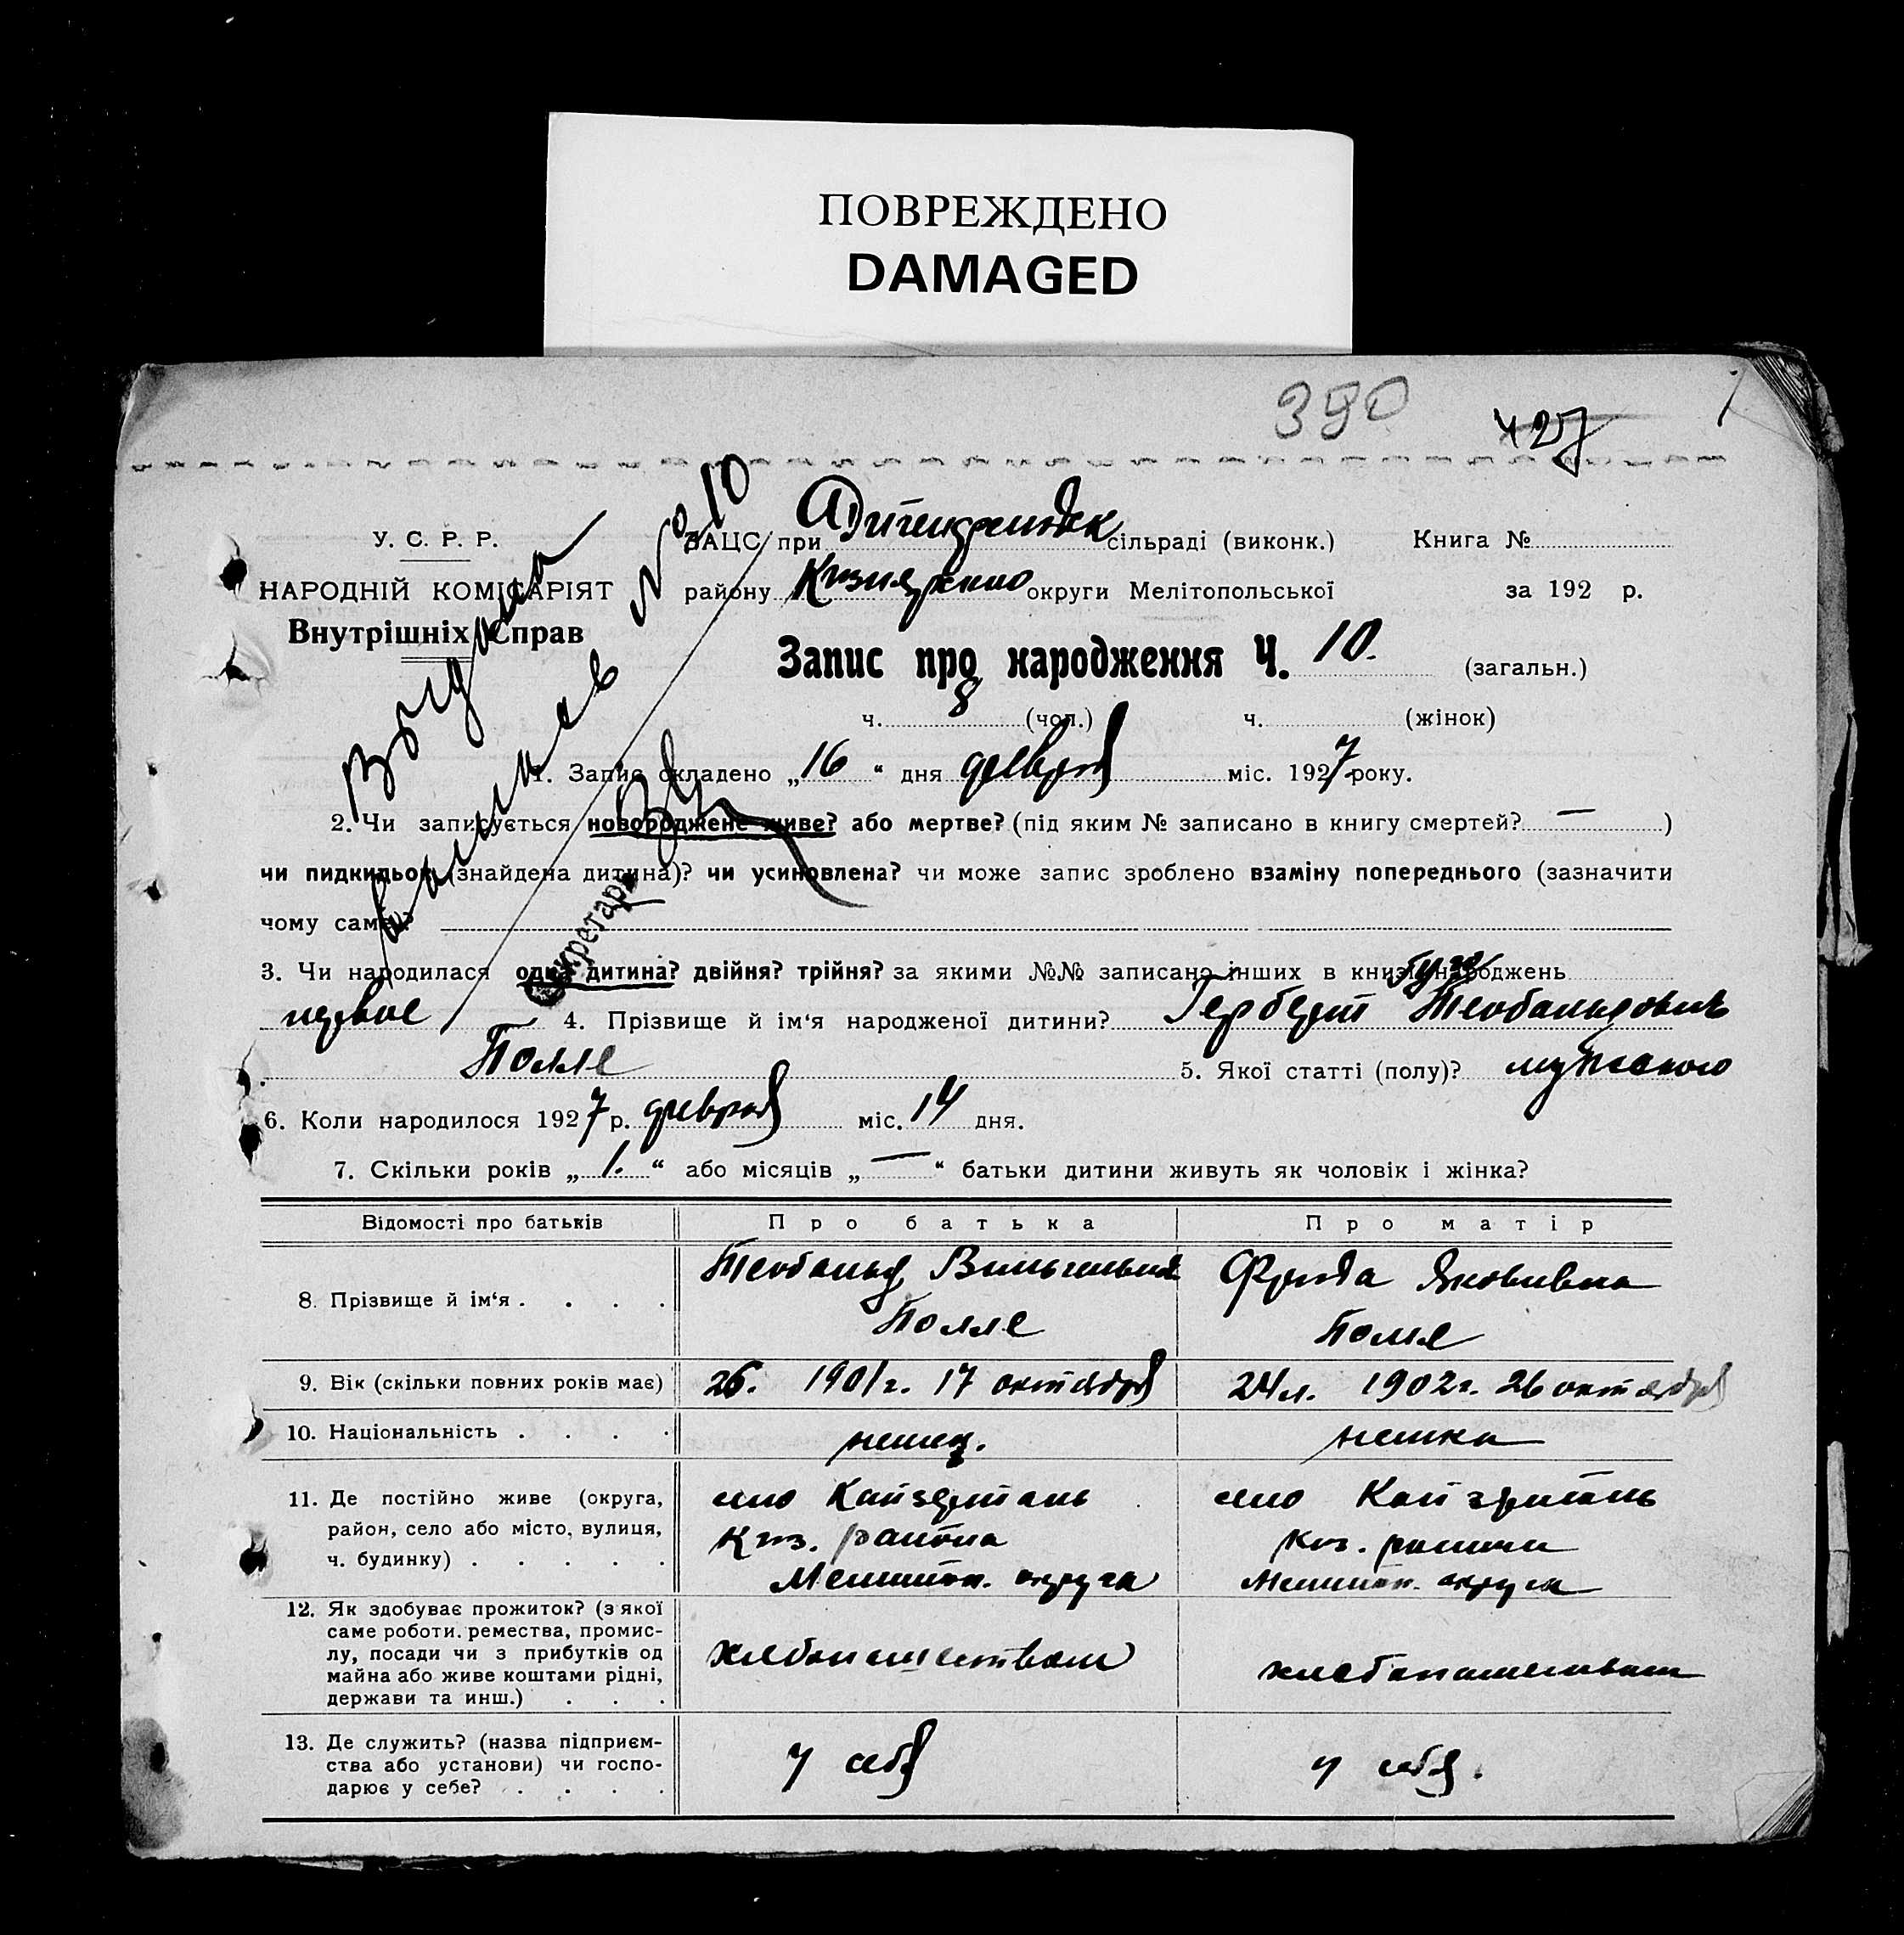 ПОВРЕЖДЕНО
DAMAGED
390 427
У. С. Р. Р.
НАРОДНІЙ КОМІСАРІЯТ
Внутрішніх Справ
Выдана
выпись
№ 10
Секретарь
ЗАЦС при сільраді (виконк.) Книга №
району округи Мелітопольської за 192 р.
Запис про народження Ч. 10. (загальн.)
ч. 8 (чол.) ч. (жінок)
1. Запис складено „16“ дня февраля міс. 1927 року.
2. Чи записується новороджене живе? або мертве? (під яким № записано в книгу смертей? — )
чи пидкидьок (знайдена дитина)? чи усиновлена? чи може запис зроблено взаміну попереднього (зазначити
чому саме)?
3. Чи народилася одна дитина? двійня? трійня? за якими №№ записано інших в книзі народжень
первое 4. Прізвище й ім‘я народженої дитини? Герберт Теобальдович
Полле 5. Якої статті (полу)? мужского
6. Коли народилося 1927 р. февраля міс. 14 дня.
7. Скільки років „1.“ або місяців „—“ батьки дитини живуть як чоловік і жінка?
Відомості про батьків Про батька Про матір
8. Прізвище й ім‘я . . . . Теобальд Вильгельмов Полле Фрида Яковлевна Полле
9. Вік (скільки повних років має) 26. 1901 г. 17 октября 24 л. 1902 г. 26 октября
10. Національність . . . . немец. немка
11. Де постійно живе (округа, село Кайзерталь село Кайзерталь
район, село або місто, вулиця, Киз. района Киз. района
ч. будинку) . . . . . Мелитоп. округа Мелитоп. округа
12. Як здобуває прожиток? (з якої
саме роботи. ремества, промис-
лу, посади чи з прибутків од хлебопашеством хлебопашеством
майна або живе коштами рідні,
держави та инш.) . . .
13. Де служить? (назва підприєм-
ства або установи) чи госпо- у себя у себя.
дарює у себе? . . . .